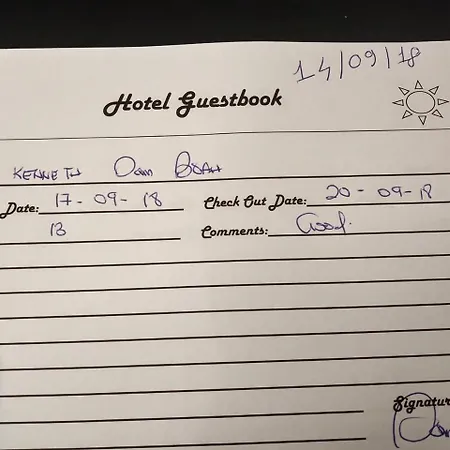 14/09/18
Hotel Guestbook
KENNETH Oam BOAH
Date: 17-09-18 Check Out Date: 20-09-18
13 Comments: Good.
Signatur